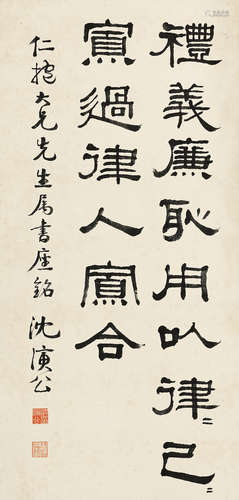 禮義廉恥用以律〻己〻
寡過律人寡合
仁大兄先生属書座銘 沈演公